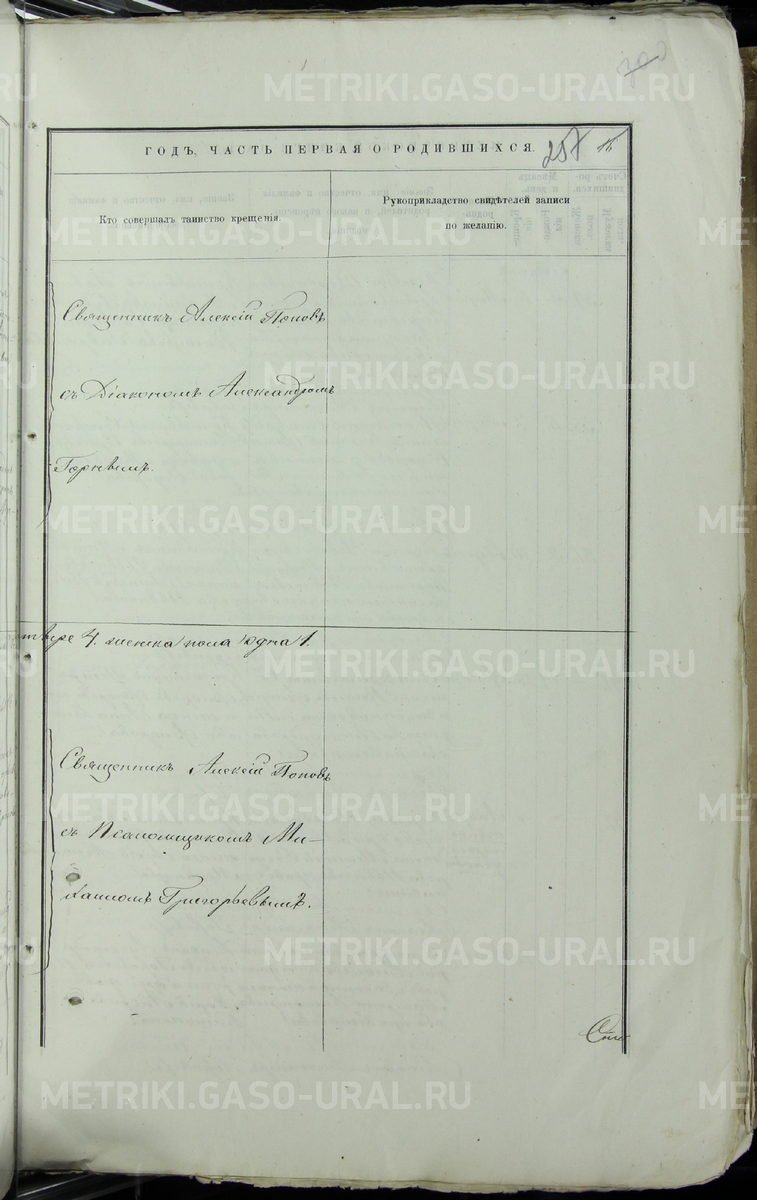 ГОДЪ, ЧАСТЬ ПЕРВАЯ О РОДИВШИХСЯ.
257
Кто совершалъ таинство крещенія.
Рукоприкладство свидѣтелей записи
по желанію.
Священникъ Алексій Поповъ
съ Діакономъ Александромъ
4. женска пола одна 1.
Священникъ Алексій Поповъ
съ Псаломщикомъ Ми-
хаиломъ Григорьевымъ.
METRIKI.GASO-URAL.RU